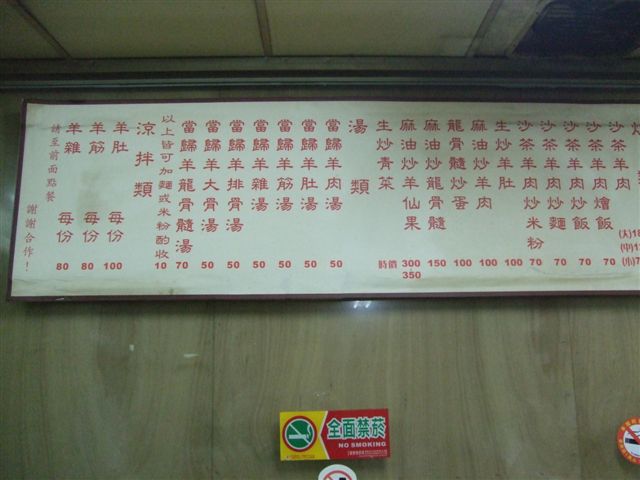 (大)1
(中)1
(小)7
沙茶羊肉燴飯 70
沙茶羊肉炒飯 70
沙茶羊肉炒麵 70
沙茶羊肉炒米粉 70
生炒羊肚 100
麻油炒羊肉 100
龍骨髓炒蛋 100
麻油炒龍骨髓 150
麻油炒羊仙果 300 350
生炒青菜 時價
湯類
當歸羊肉湯 50
當歸羊肚湯 50
當歸羊筋湯 50
當歸羊雜湯 50
當歸羊排骨湯 50
當歸羊大骨湯 50
當歸羊龍骨髓湯 70
以上皆可加麵或米粉酌收 10
涼拌類
羊肚 每份 100
羊筋 每份 80
羊雜 每份 80
請至前面點餐
謝謝合作！
全面禁菸
NO SMOKING